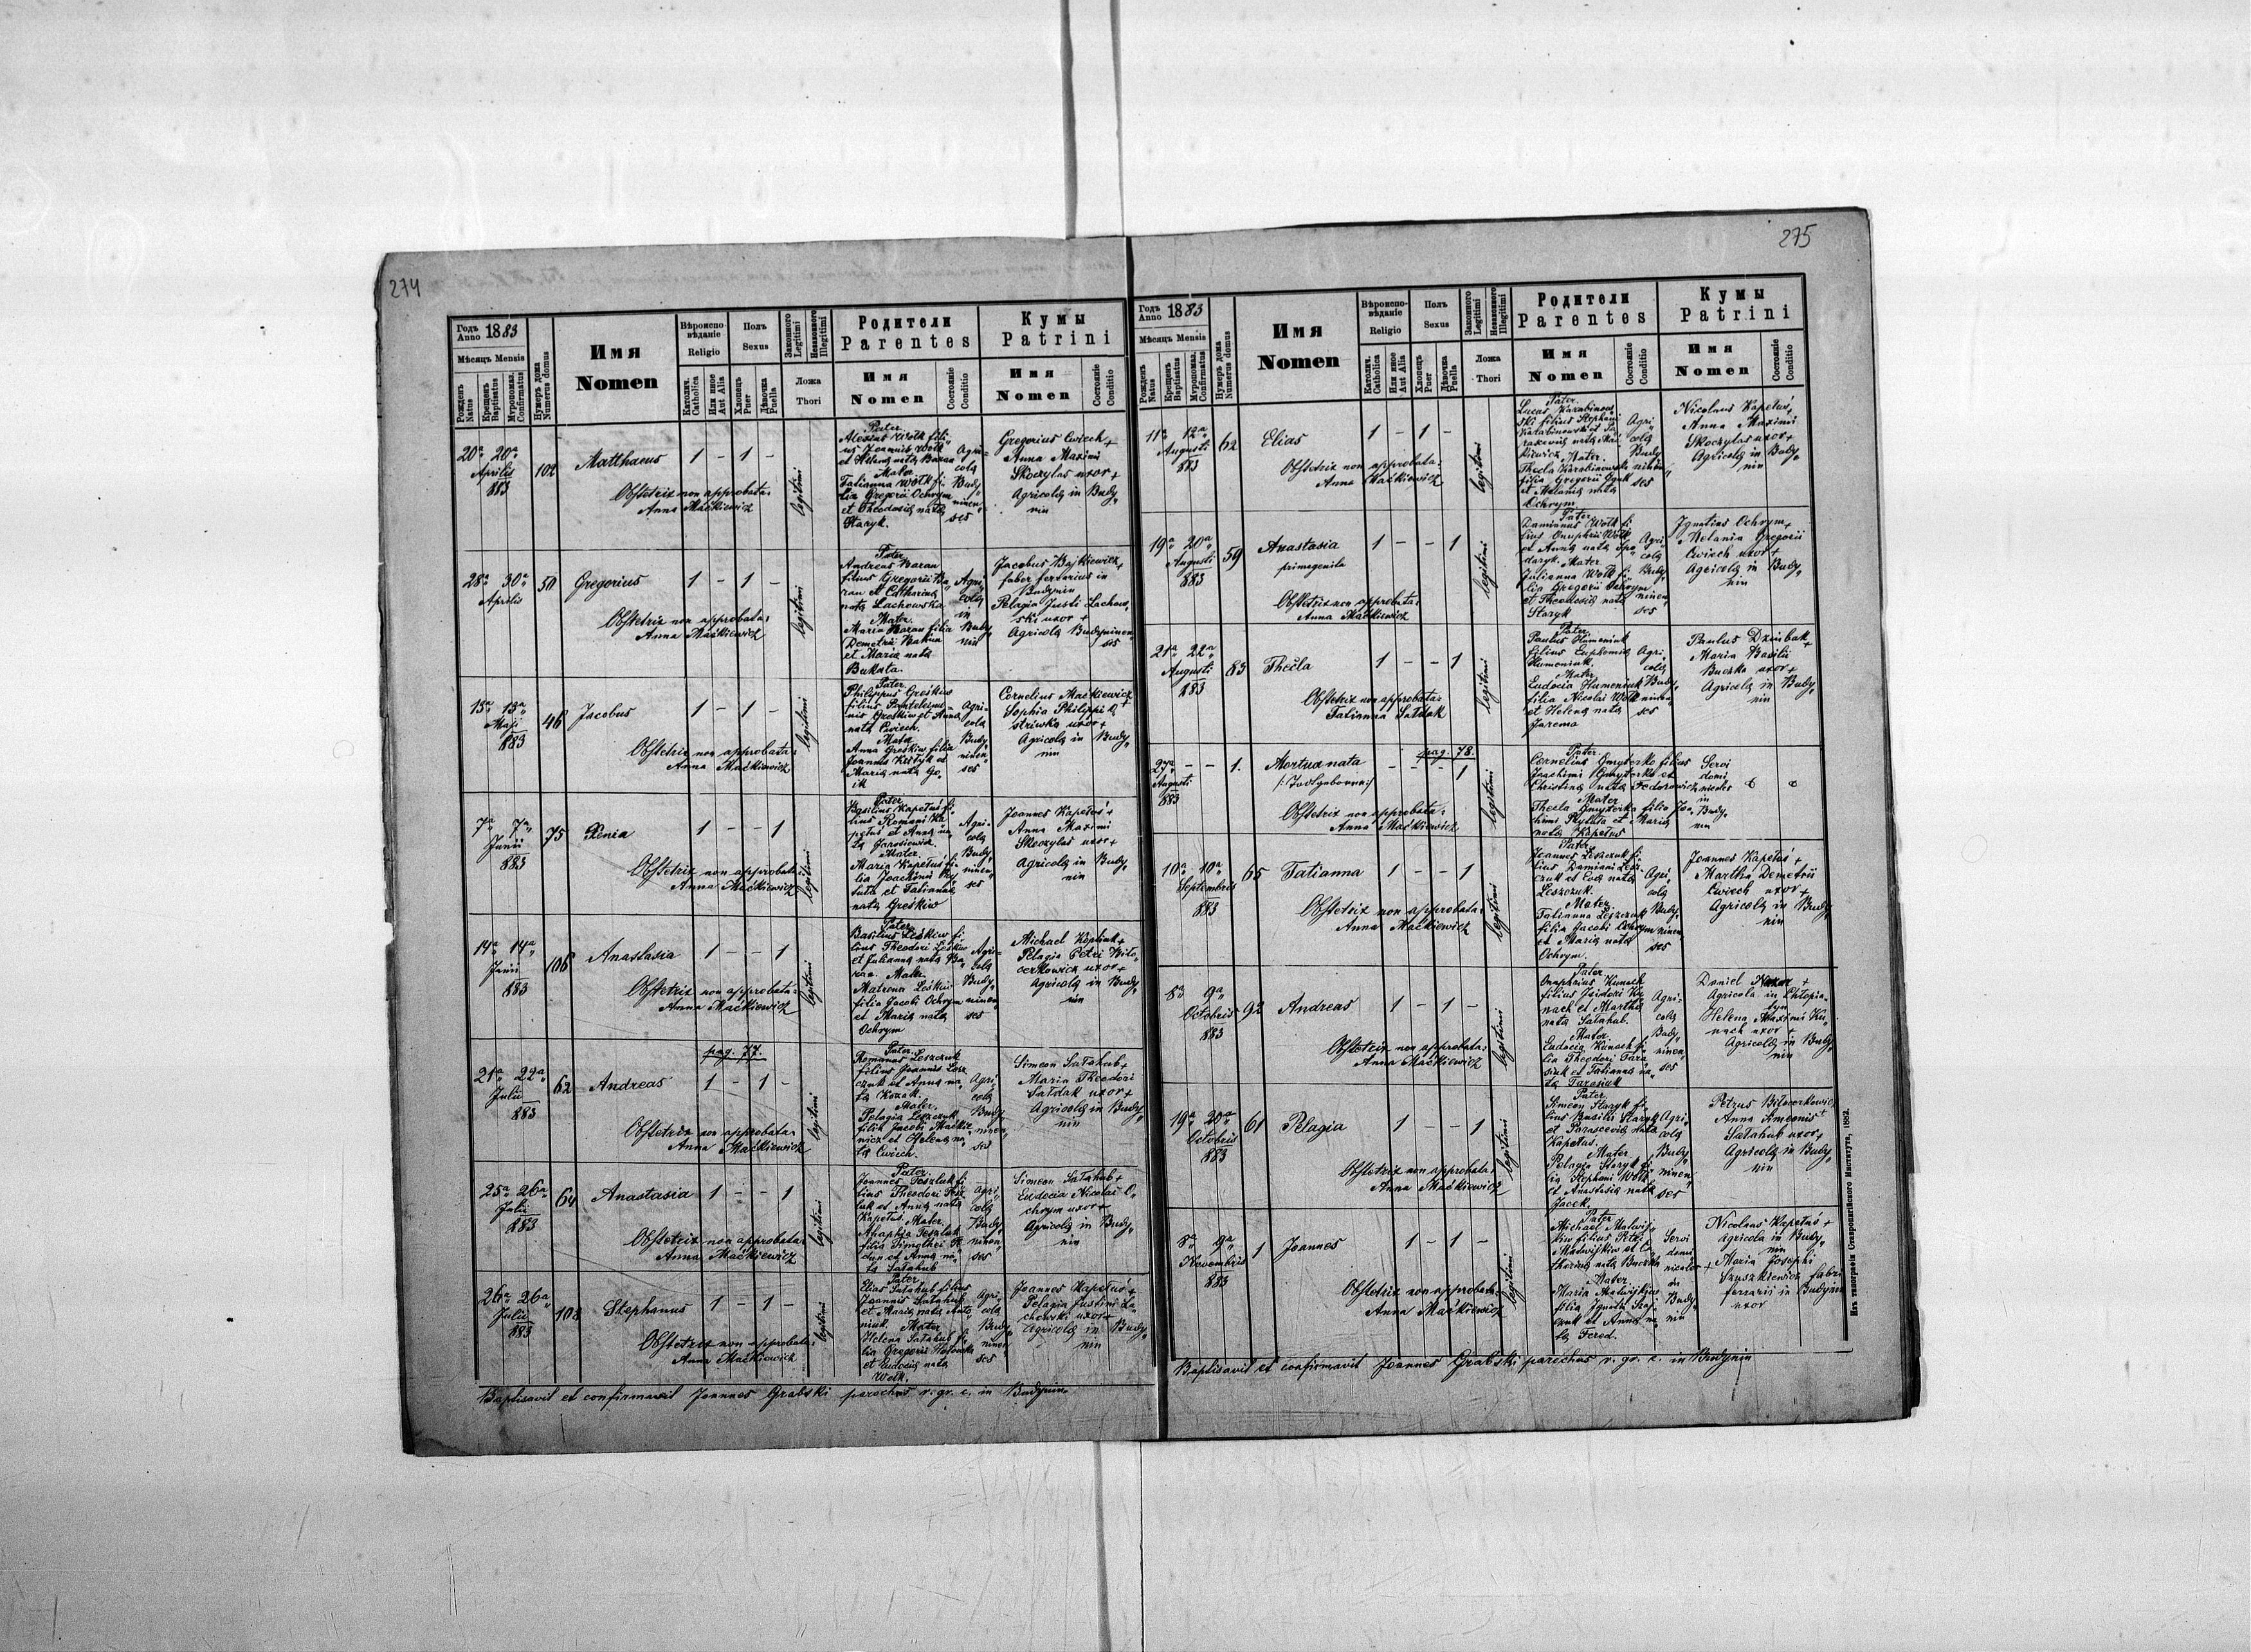 274
Годъ Anno 1883
Мѣсяць Mensis
Рожденъ Natus
Крещенъ Baptisatus
Муропомаз. Confirmatus
Нумеръ дома Numerus domus
Имя
Nomen
Вѣроиспо-
вѣданіе
Religio
Католич. Catholica
Или иное Aut Alia
Полъ
Sexus
Хлопецъ Puer
Дѣвочка Puella
Законного Legitimi
Незаконного Illegitimi
Ложа
Thori
Родители
Parentes
Имя
Nomen
Состояніе Conditio
Кумы
Patrini
Имя
Nomen
Состояніе Conditio
20a 20a
Aprilis
883
102
Matthaeus
1 - 1 -
Obstetrix non approbata:
Anna Maćkiewicz
legitimi
Pater
Alexius Wolk fili
us Joannis Wolk
et Helena nata Baran
Mater
Tatianna Wolk fi
lia Gregorii Ochrym
et Theodosia nata
Staryk.
Agri=
cola
Budy
ninen
ses
Gregorius Cwiech +
Anna Maximi
Skoczylas uxor +
Agricola in Budy
nin
28a 30a
Aprilis
50
Gregorius
1 - 1 -
Obstetrix non approbata:
Anna Maćkiewicz
legitimi
Pater
Andreas Baran
filius Gregorii Ba
ran et Catharina
nata Lachowska.
Mater.
Maria Baran filia
Demetrii
et Maria nata
Bukata.
Agri
cola
in
Budy
nin
Jacobus Bajkiewicz +
faber ferrarius in
Budynin
Pelagia Justi Lachow
ski uxor +
Agricola Budyninen
ses
13a 13a
Maji
883
46
Jacobus
1 - 1 -
Obstetrix non approbata:
Anna Maćkiewicz
legitimi
Pater
Philippus Greśkiw
filius Panteleimo
nis Greśkiw et Anna
nata Cwiech.
Mater
Anna Greśkiw filia
Joannis Kostyk et
Maria nata Go
ik
Agri=
cola
Budy
ninen
ses
Cornelius Maćkiewicz +
Sophia Philippi O
striwka uxor +
Agricola in Budy
nin
7a 7a
Junii
883
75
Xenia
1 - - 1
Obstetrix non approbata:
Anna Maćkiewicz
legitimi
Pater
Basilius Kapeluś fi
lius Romani Ka
peluś et Anna na
ta Jarosiewicz.
Mater.
Maria Kapeluś fi
lia Joachimi
et Tatianna
nata Greśkiw
Agri=
cola
Budy
ninen
ses
Joannes Kapeluś +
Anna Maximi
Skoczylas uxor +
Agricola in Budy
nin
14a 14a
Junii
883
106
Anastasia
1 - - 1
Obstetrix non approbata:
Anna Maćkiewicz
legitimi
Pater
Basilius Leśkiw fi
lius Theodori Leśkiw
et Julianna nata Ba
ran. Mater.
Matrona Leśkiw
filia Jacobi Ochrym
et Maria nata
Ochrym
Agri=
cola
Budy
ninen
ses
Michael +
Pelagia Petri Biło
cerkowicz uxor +
Agricola in Budy
nin
pag. 77.
21a 22a
Julii
883
62
Andreas
1 - 1 -
Obstetrix non approbata:
Anna Maćkiewicz
legitimi
Pater.
Romanus Leszczuk
filius Joannis Lesz
czuk et Anna na
ta Kozak.
Mater.
Pelagia Leszczuk
filia Jacobi Maćkie
wicz et Helena na
ta Cwiech.
Agri
cola
Budy
ninen
ses
Simeon Sałahub +
Maria Theodori
Sałdak uxor +
Agricola in Budy
nin
25a 26a
Julii
883
64
Anastasia
1 - - 1
Obstetrix non approbata:
Anna Maćkiewicz
legitimi
Pater.
Joannes Teszluk fi
lius Theodori Tesz
luk et Anna nata
Kapeluś. Mater.
Ahaphia Teszluk
filia Timothei
et Anna na
ta Sałahub
Agri
cola
Budy
ninen
ses
Simeon Sałahub +
Eudocia Nicolai O
chrym uxor +
Agricola in Budy
nin
26a 26a
Julii
883
108
Stephanus
1 - 1 -
Obstetrix non approbata:
Anna Maćkiewicz
legitimi
Pater
Elias Sałahub filius
Joannis Sałahub
et Maria nata
Mater
Helena Sałahub fi
lia Gregorii
et Eudocia nata
Wolk.
Agri
cola
Budy
ninen
ses
Joannes Kapeluś +
Pelagia Justini La
chowski uxor +
Agricola in Budy
nin
Baptisavit et confirmavit Joannes Grabski parochus r. gr. c. in Budynin
275
Годъ Anno 1883
Мѣсяць Mensis
Рожденъ Natus
Крещенъ Baptisatus
Муропомаз. Confirmatus
Нумеръ дома Numerus domus
Имя
Nomen
Вѣроиспо-
вѣданіе
Religio
Католич. Catholica
Или иное Aut Alia
Полъ
Sexus
Хлопецъ Puer
Дѣвочка Puella
Законного Legitimi
Незаконного Illegitimi
Ложа
Thori
Родители
Parentes
Имя
Nomen
Состояніе Conditio
Кумы
Patrini
Имя
Nomen
Состояніе Conditio
11a 12a
Augusti
883
62
Elias
1 - 1 -
Obstetrix non approbata:
Anna Maćkiewicz
legitimi
Pater.
Lucas Karabinow
ski filius Stephani
Karabinowski et Pa
rascevia nata Mać
kiewicz Mater.
Thecla Karabinowski
filia Gregorii
et Melania nata
Ochrym
Agri
cola
Budy
ninen
ses
Nicolaus Kapeluś,
Anna Maximi
Skoczylas uxor +
Agricola in Budy
nin
19a 20a
Augusti
883
59
Anastasia
primogenita
1 - - 1
Obstetrix non approbata:
Anna Maćkiewicz
legitimi
Pater
Damianus Wolk fi
lius Onuphrii Wolk
et Anna nata Spo
daryk. Mater
Julianna Wolk fi
lia Gregorii Ochrym
et Theodosia nata
Staryk
Agri
cola
Budy
ninen
ses
Ignatius Ochrym +
Melania Gregorii
Cwiech uxor +
Agricola in Budy
nin
21a 22a
Augusti
883
83
Thecla
1 - - 1
Obstetrix non approbata:
Tatianna Sałdak
legitimi
Pater
Paulus Humeniuk
filius Euphemia
Humeniuk.
Mater
Eudocia Humeniuk
filia Nicolai Wolk
et Helena nata
Jarema
Agri
cola
Budy
ninen
ses
Paulus Dziubak +
Maria Basilii
Buczko uxor +
Agricola in Budy
nin
pag. 78.
27a - -
Augusti
883
1.
Mortua nata
- - - 1
Obstetrix non approbata:
Anna Maćkiewicz
legitimi
Pater.
Cornelius Gmyterko filius
Joachimi Gmyterko et
Christina nata Fedorowicz
Mater
Thecla Gmyterko filia Joa
chimi et Maria
nata Kapeluś
Servi
domi
nicales
in
Budy
nin
10a 10a
Septembris
883
65
Tatianna
1 - - 1
Obstetrix non approbata:
Anna Maćkiewicz
legitimi
Pater.
Joannes Leszczuk fi
lius Damiani Lesz
czuk et Eva nata
Leszczuk.
Mater.
Tatianna Leszczuk
filia Jacobi Ochrym
et Maria nata
Ochrym.
Agri
cola
Budy
ninen
ses
Joannes Kapeluś +
Martha Demetrii
Cwiech uxor +
Agricola in Budy
nin
8a 9a
Octobris
883
92
Andreas
1 - 1 -
Obstetrix non approbata:
Anna Maćkiewicz
legitimi
Pater
Onuphrius Kunach
filius Isidori Ku
nach et Martha
nata Sałahub.
Mater.
Eudocia Kunach fi
lia Theodori Tara
siuk et Tatianna na
ta Tarasiuk
Agri
cola
Budy
ninen
ses
Daniel +
Agricola in Chłopia
tyn
Helena Maximi Ku
nach uxor +
Agricola in Budy
nin
19a 20a
Octobris
883
61
Pelagia
1 - - 1
Obstetrix non approbata:
Anna Maćkiewicz
legitimi
Pater.
Simeon Staryk fi
lius Basilii Staryk
et Parascevia nata
Kapeluś.
Mater
Pelagia Staryk fi
lia Stephani Wolk
et Anastasia nata
Jacek.
Agri
cola
Budy
ninen
ses
Petrus Biłocerkowicz
Anna Simeonis +
Sałahub uxor +
Agricola in Budy
nin
8a 9a
Novembris
883
1
Joannes
1 - 1 -
Obstetrix non approbata:
Anna Maćkiewicz
legitimi
Pater
Michael Matwij
kiw filius Petri
Matwijkiw et Ca
tharina nata Buczko
Mater
Maria Matwijkiw
filia Ignatii
et Anna na
ta Fered.
Servi
domi
nicales
in
Budy
nin
Nicolaus Kapeluś +
Agricola in Budy
nin
+ Maria Josephi
Szuszkiewicz fabri
ferrarii in Budynin
uxor
Baptisavit et confirmavit Joannes Grabski parochus r. gr. c. in Budynin
Изъ типографіи Ставропигійского Института, 1882.